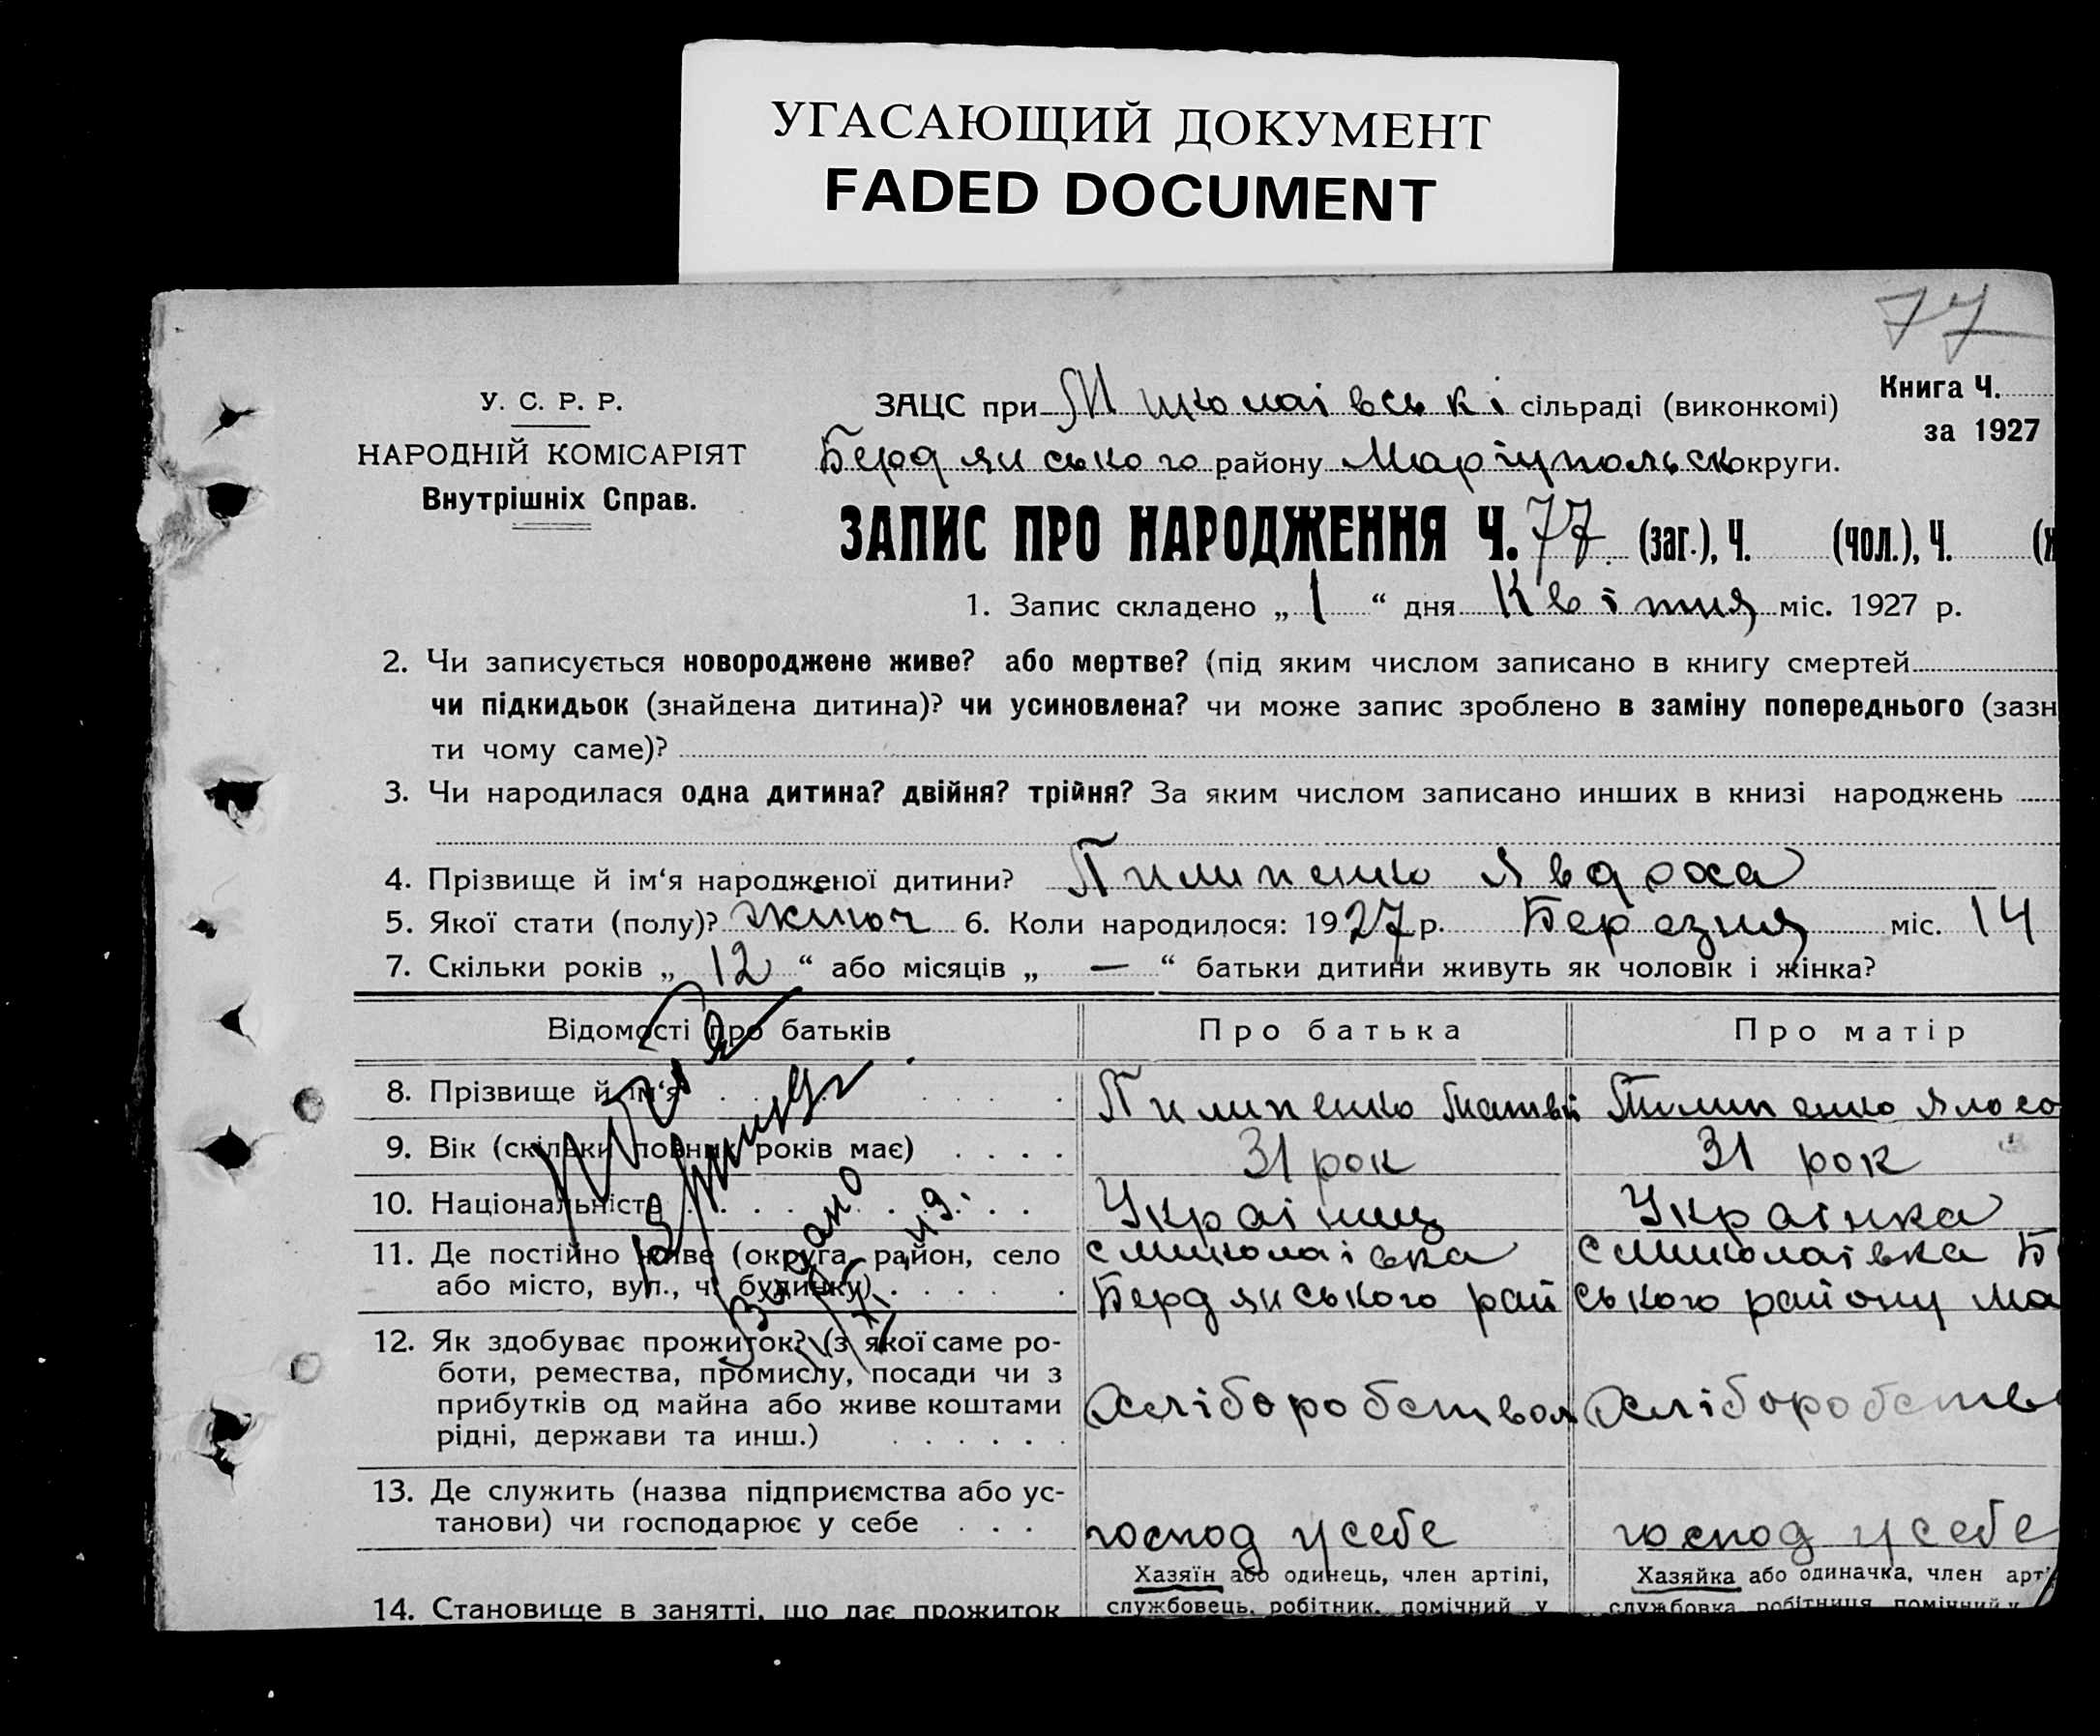 УГАСАЮЩИЙ ДОКУМЕНТ
FADED DOCUMENT
77
У. С. Р. Р.
НАРОДНІЙ КОМІСАРІЯТ
Внутрішніх Справ.
Книга Ч.
за 1927
ЗАЦС при Миколаівські сільраді (виконкомі)
Бердянського району Маріупольськ округи.
ЗАПИС ПРО НАРОДЖЕННЯ Ч. 77 (заг.), Ч. (чол.), Ч. (ж
1. Запис складено „ 1 “ дня Квітня міс. 1927 р.
2. Чи записується новороджене живе? або мертве? (під яким числом записано в книгу смертей
чи підкидьок (знайдена дитина)? чи усиновлена? чи може запис зроблено в заміну попереднього (зазн
ти чому саме)?
3. Чи народилася одна дитина? двійня? трійня? За яким числом записано инших в книзі народжень
4. Прізвище й ім‘я народженої дитини? Пилипенко Явдоха
5. Якої стати (полу)? жіноч 6. Коли народилося: 1927 р. Березня міс. 14
7. Скільки років „ 12 “ або місяців „ — “ батьки дитини живуть як чоловік і жінка?
Відомості про батьків Про батька Про матір
8. Прізвище й ім‘я Пилипенко Матвій Пилипенко
9. Вік (скільки повних років має) 31 рок 31 рок
10. Національність Украінец Украінка
11. Де постійно живе (округа, район, село с Миколаівка с Миколаівка Б
або місто, вул., ч. будинку) Бердянського рай ського району Ма
12. Як здобуває прожиток? (з якої саме ро-
боти, ремества, промислу, посади чи з
прибутків од майна або живе коштами Хліборобством Хліборобств
рідні, держави та инш.)
13. Де служить (назва підприємства або ус-
танови) чи господарює у себе господ у себе господ у себе
Хазяїн або одинець, член артілі, Хазяйка або одиначка, член арт
14. Становище в занятті, що дає прожиток службовець, робітник, помічний у службовка, робітниця, помічний у